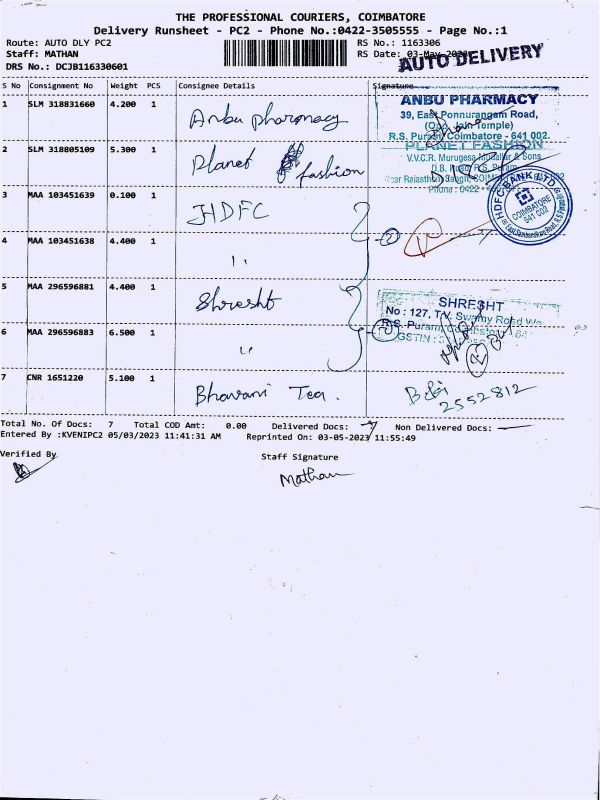 THE PROFESSIONAL COURIERS, COIMBATORE
Delivery Runsheet - PC2 - Phone No.:0422-3505555 - Page No.:1
Route: AUTO DLY PC2
RS No.: 1163306
Staff: MATHAN
RS Date: 03-May-2023
AUTO DELIVERY
DRS No.: DCJB116330601
S No Consignment No Weight PCS Consignee Details Signature
1 SLM 318831660 4.200 1 Anbu pharmacy
ANBU PHARMACY
39, East Ponnurangam Road,
(Opp. Jain Temple)
R.S. Puram, Coimbatore - 641 002.
2 SLM 318805109 5.300 1 Planet fashion
PLANET FASHION
V.V.C.R. Murugesa Mudaliar & Sons
D.B. Road, R.S. Puram
Phone : 0422
3 MAA 103451639 0.100 1 HDFC
HDFC BANK LTD
COIMBATORE
641 002
4 MAA 103451638 4.400 1 ''
2
5 MAA 296596881 4.400 1 Shresht
SHRESHT
No : 127, T.V. Swamy Road
R.S. Puram,
GSTIN :
6 MAA 296596883 6.500 1 ''
2
7 CNR 1651220 5.100 1 Bhavani Tea.
2552812
Total No. Of Docs: 7 Total COD Amt: 0.00 Delivered Docs: 7 Non Delivered Docs:
Entered By :KVENIPC2 05/03/2023 11:41:31 AM Reprinted On: 03-05-2023 11:55:49
Verified By
Staff Signature
Mathan